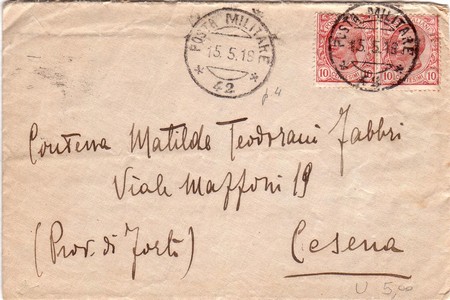 POSTA MILITARE
15.5.19
42
POSTA MILITARE
15.5.19
42
10 10
Contessa Matilde Teodorani Fabbri
Viale Mazzoni 19
(Prov. di Forlì)
Cesena
U 5,00